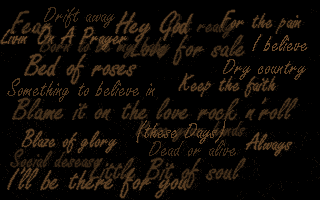 Fear
Drift away
Hey God
really
For the pain
Livin On A Prayer
Born to be my
Love for sale
I believe
Bed of roses
Dry country
Something to believe in
Keep the faith
Blame it on the love rock n'roll
Blaze of glory
(these Days)
Dead or alive
Always
Social desease
Little Bit of soul
I'll be there for you